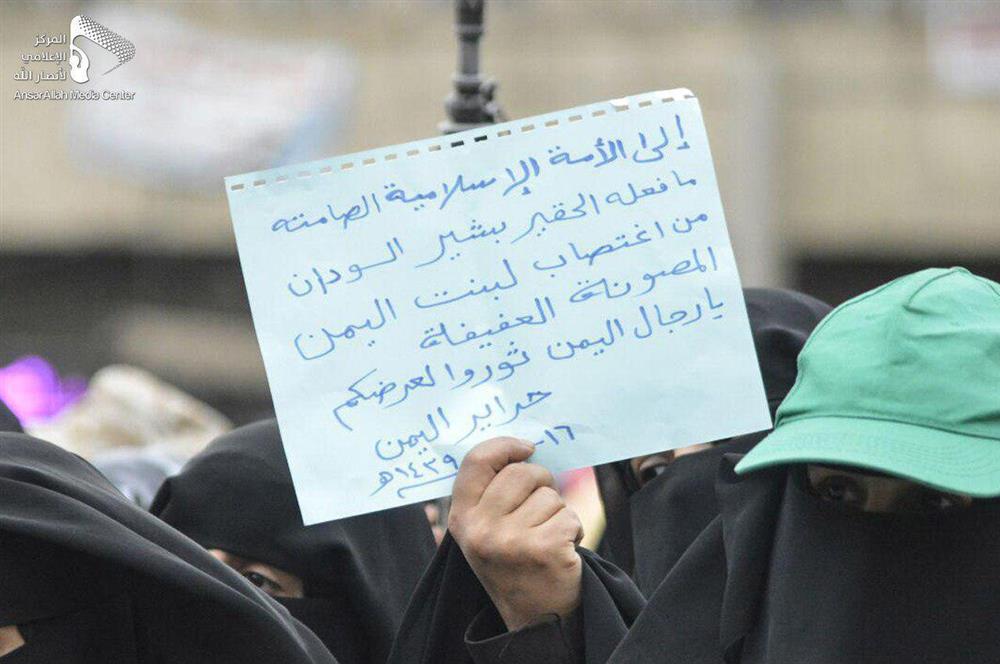 المركز
الإعلامي
لأنصار الله
AnsarAllah Media Center
إلى الأمة الإسلامية الصامته
ما فعله الحقير بشير السودان
من اغتصاب لبنت اليمن
المصونة العفيفة
يا رجال اليمن ثوروا لعرضكم
حراير اليمن
١٤٣٩هـ